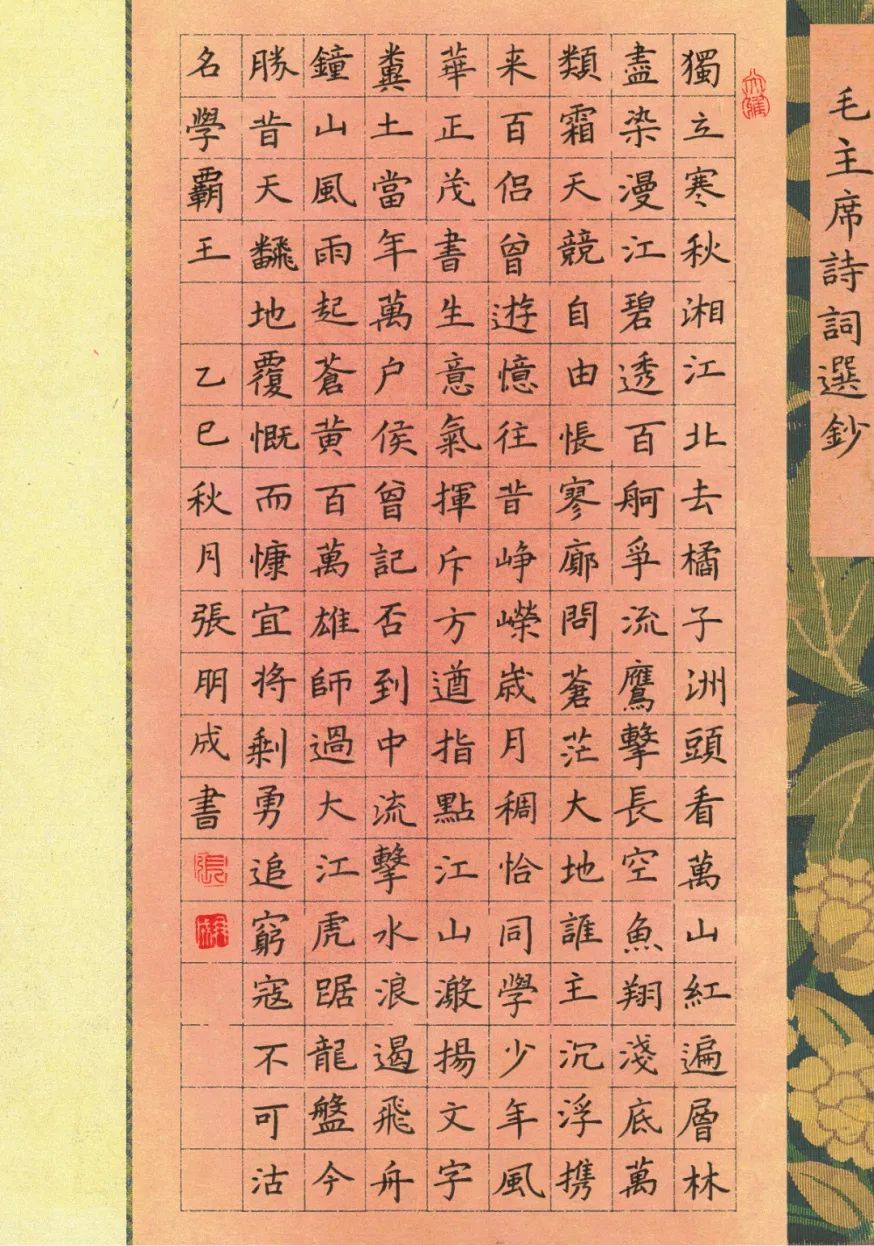 毛主席詩詞選鈔
獨立寒秋湘江北去橘子洲頭看萬山紅遍層林
盡染漫江碧透百舸爭流鷹擊長空魚翔淺底萬
類霜天競自由悵寥廓問蒼茫大地誰主沉浮携
来百侣曾遊憶往昔崢嶸歲月稠恰同學少年風
華正茂書生意氣揮斥方遒指點江山激揚文字
糞土當年萬户侯曾記否到中流擊水浪遏飛舟
鐘山風雨起蒼黄百萬雄師過大江虎踞龍盤今
勝昔天翻地覆慨而慷宜將剩勇追窮寇不可沽
名學霸王 乙巳秋月張朋成書
張